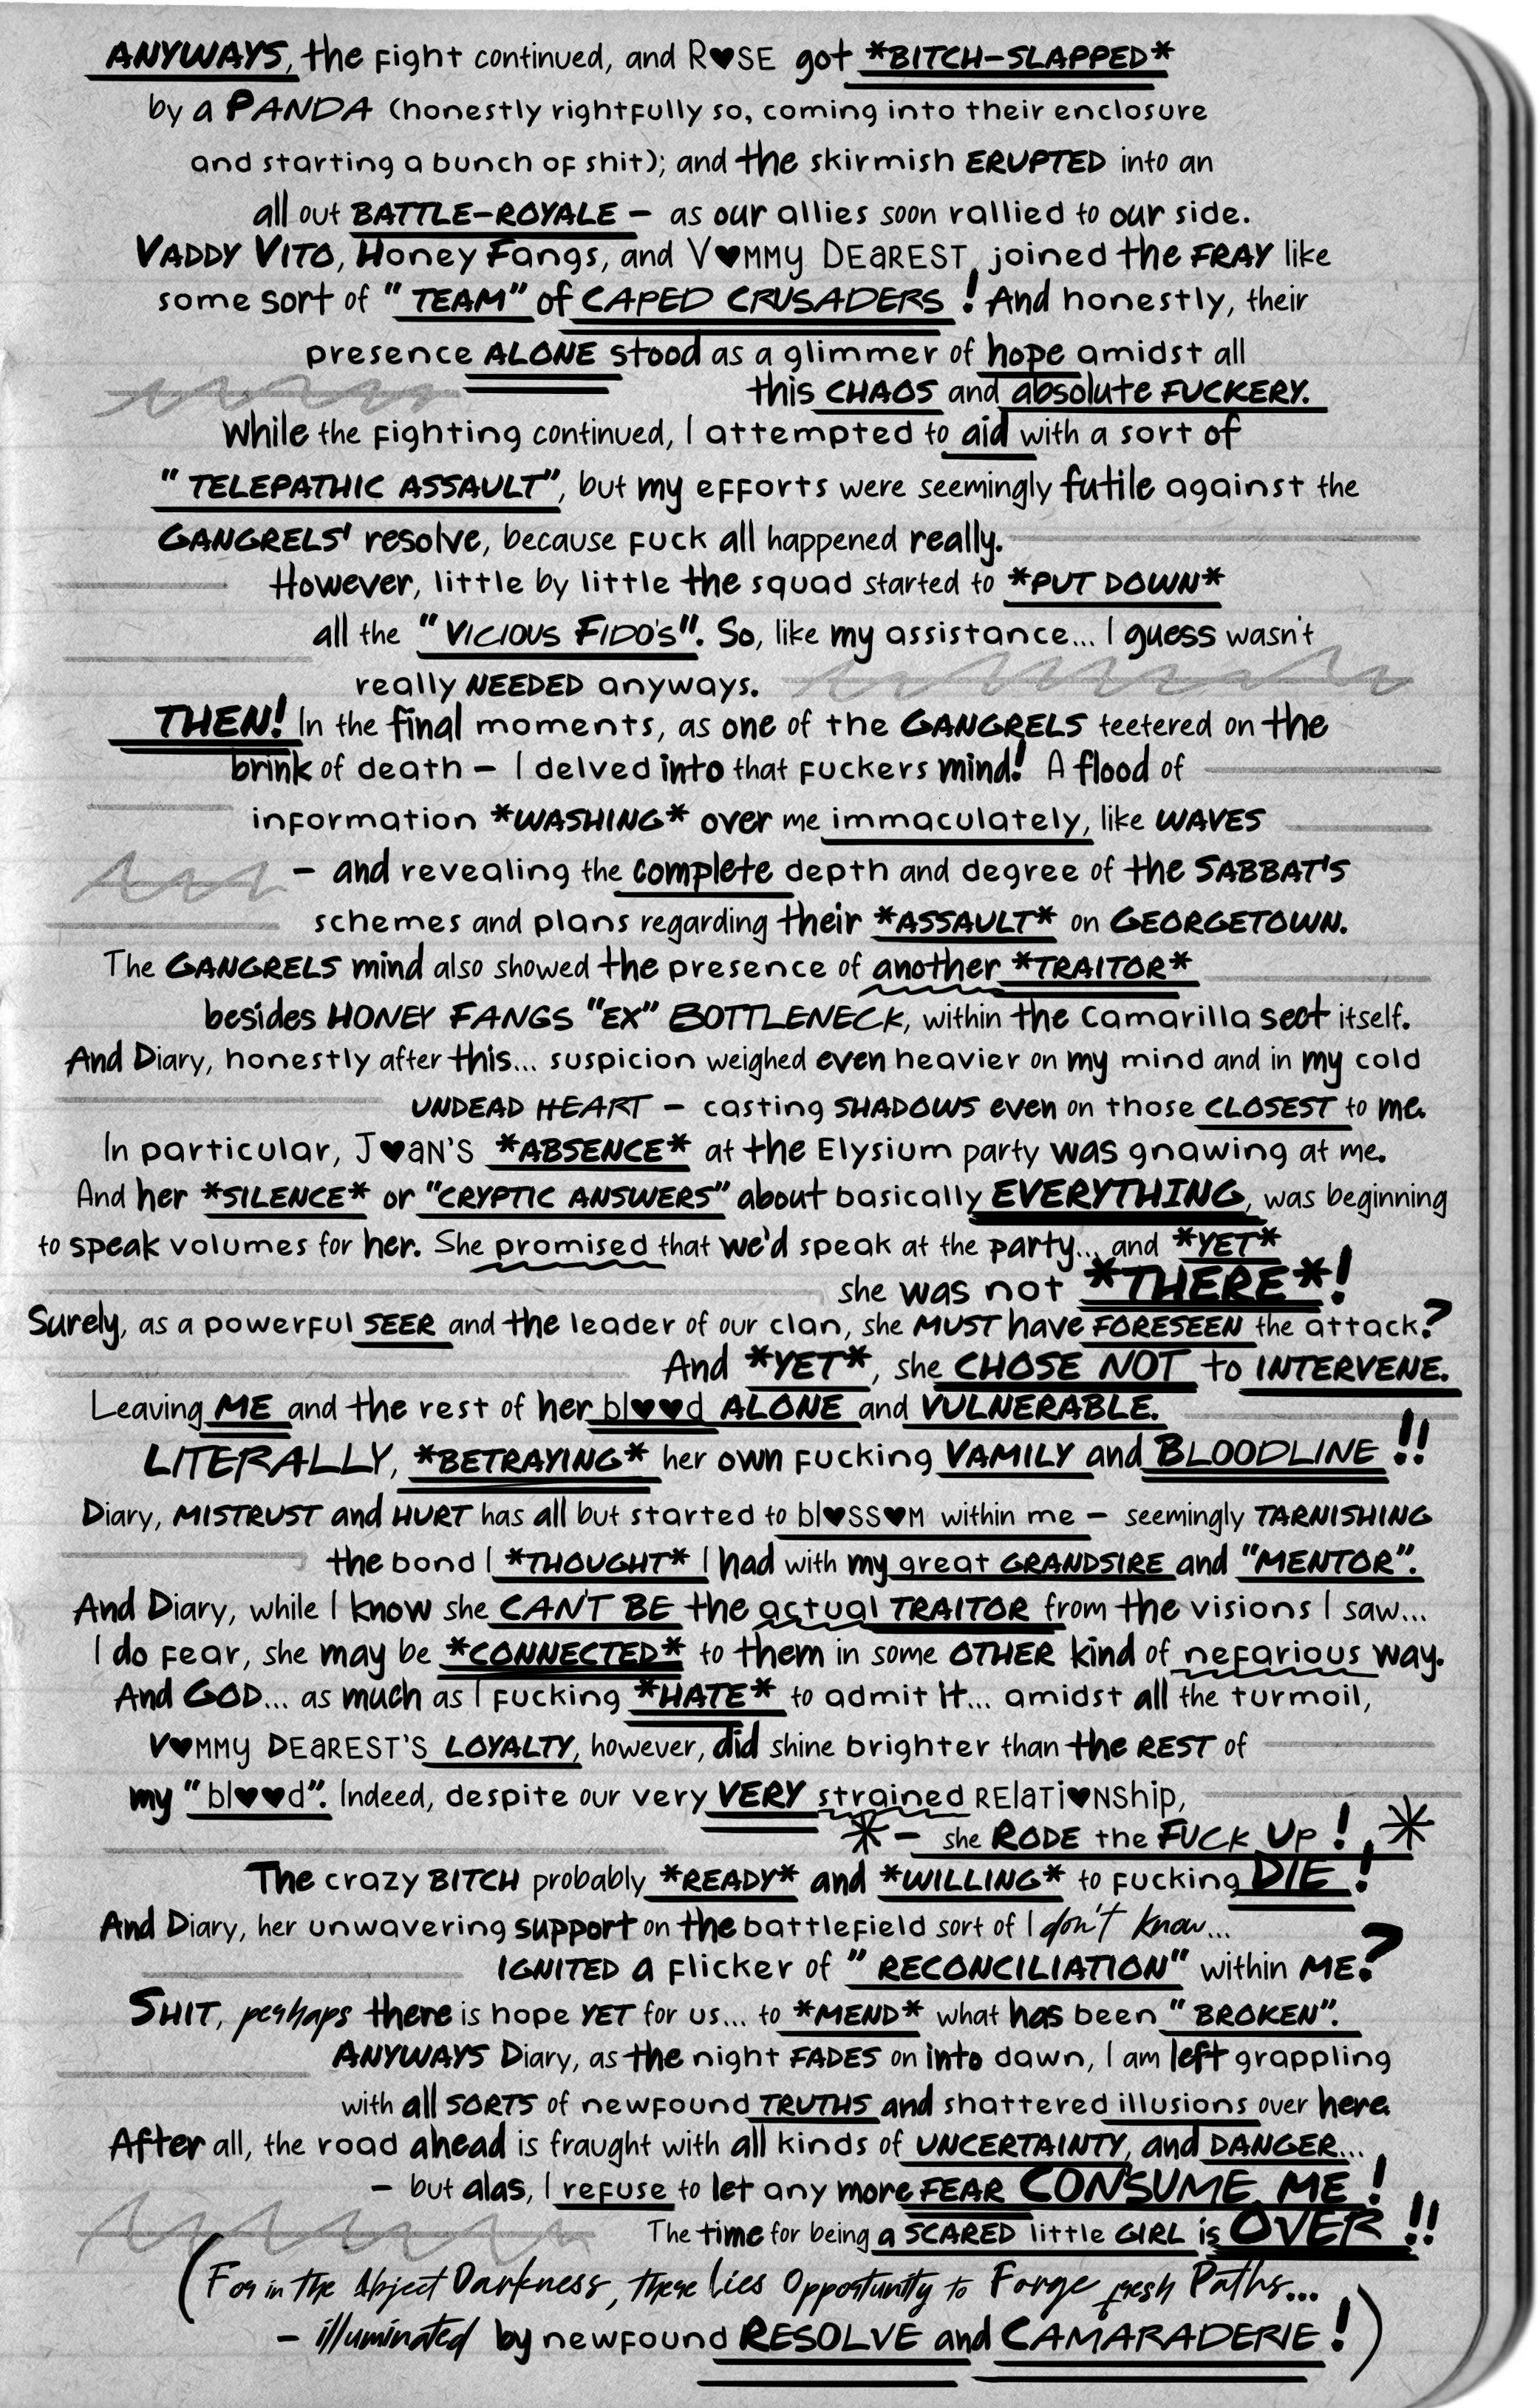 ANYWAYS, the fight continued, and R♥SE got *BITCH-SLAPPED*
by a PANDA (honestly rightfully so, coming into their enclosure
and starting a bunch of shit); and the skirmish ERUPTED into an
all out BATTLE-ROYALE - as our allies soon rallied to our side.
VADDY VITO, Honey Fangs, and V♥MMY DEAREST, joined the FRAY like
some sort of "TEAM" of CAPED CRUSADERS! And honestly, their
presence ALONE stood as a glimmer of hope amidst all
this CHAOS and absolute FUCKERY.
While the fighting continued, I attempted to aid with a sort of
"TELEPATHIC ASSAULT", but my efforts were seemingly futile against the
GANGRELS' resolve, because fuck all happened really.
However, little by little the squad started to *PUT DOWN*
all the "VICIOUS FIDO'S". So, like my assistance... I guess wasn't
really NEEDED anyways.
THEN! In the final moments, as one of the GANGRELS teetered on the
brink of death - I delved into that fuckers mind! A flood of
information *WASHING* over me immaculately, like WAVES
- and revealing the complete depth and degree of the SABBAT'S
schemes and plans regarding their *ASSAULT* on GEORGETOWN.
The GANGRELS mind also showed the presence of another *TRAITOR*
besides HONEY FANGS "EX" BOTTLENECK, within the Camarilla sect itself.
And Diary, honestly after this... suspicion weighed even heavier on my mind and in my cold
UNDEAD HEART - casting SHADOWS even on those CLOSEST to me.
In particular, J♥aN'S *ABSENCE* at the Elysium party was gnawing at me.
And her *SILENCE* or "CRYPTIC ANSWERS" about basically EVERYTHING, was beginning
to speak volumes for her. She promised that we'd speak at the party... and *YET*
she was not *THERE*!
Surely, as a powerful SEER and the leader of our clan, she MUST have FORESEEN the attack?
And *YET*, she CHOSE NOT to INTERVENE.
Leaving ME and the rest of her bl♥♥d ALONE and VULNERABLE.
LITERALLY, *BETRAYING* her own fucking VAMILY and BLOODLINE!!
Diary, MISTRUST and HURT has all but started to bl♥SS♥M within me - seemingly TARNISHING
the bond I *THOUGHT* I had with my great GRANDSIRE and "MENTOR".
And Diary, while I know she CAN'T BE the actual TRAITOR from the visions I saw...
I do fear, she may be *CONNECTED* to them in some OTHER kind of nefarious way.
And GOD... as much as I fucking *HATE* to admit it... amidst all the turmoil,
V♥MMY DEaREST'S LOYALTY, however, did shine brighter than the REST of
my "bl♥♥d". Indeed, despite our very VERY strained RElaTi♥NShip,
*- she RODE the FUCK UP! *
The crazy BITCH probably *READY* and *WILLING* to fucking DIE!
And Diary, her unwavering support on the battlefield sort of I don't know...
IGNITED a flicker of "RECONCILIATION" within ME?
SHIT, perhaps there is hope YET for us... to *MEND* what has been "BROKEN".
ANYWAYS Diary, as the night FADES on into dawn, I am left grappling
with all SORTS of newfound TRUTHS and shattered illusions over here.
After all, the road ahead is fraught with all kinds of UNCERTAINTY, and DANGER...
- but alas, I refuse to let any more FEAR CONSUME ME!
The time for being a SCARED little GIRL is OVER!!
(For in the Abject Darkness, there lies Opportunity to Forge fresh Paths...
- illuminated by newfound RESOLVE and CAMARADERIE!)